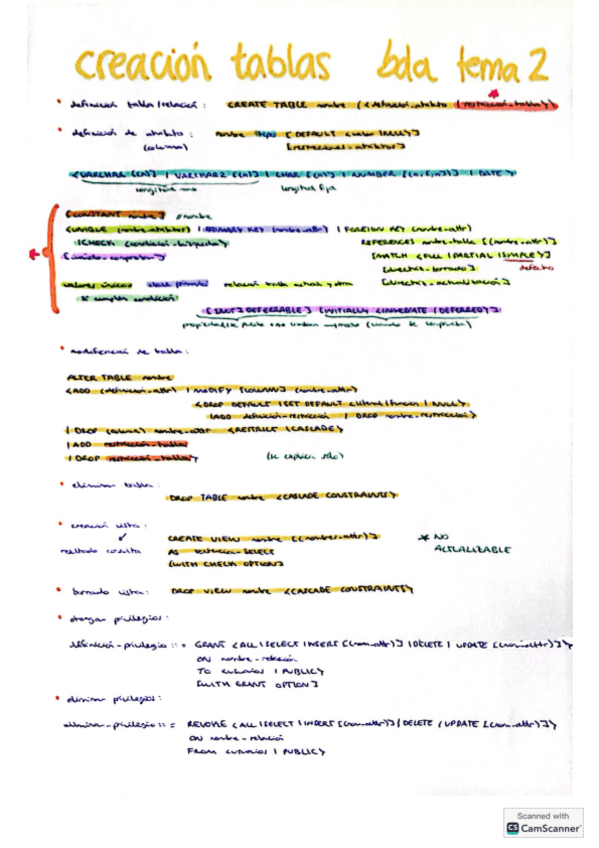 creación tablas bda tema 2
• definición tabla/relación: CREATE TABLE nombre (<definición-atributo | restricción-tabla>)
*
• definición de atributo: nombre tipo [DEFAULT <valor|NULL>]
(columna) [restricciones-atributos]
<VARCHAR [(n)] | VARCHAR2 [(n)] | CHAR [(n)] | NUMBER [(n[,n])] | DATE>
longitud max longitud fija
[CONSTANT nombre] nombre
<UNIQUE (nombre-atributos) | PRIMARY KEY (nombre-attr) | FOREIGN KEY (nombre-attr)
|CHECK (condición-búsqueda) REFERENCES nombre-tabla [(nombre-attr)]
* [cuando-comprobar] [MATCH <FULL |PARTIAL |SIMPLE>]
[directriz-borrado] defecto
valores únicos clave primaria relación tabla actual y otra [directriz-actualización]>
si cumplen condición
[[NOT] DEFERRABLE] [INITIALLY <INMEDIATE | DEFERRED>]
• modificación de tabla:
ALTER TABLE nombre
<ADD (definición-attr) | MODIFY [COLUMN] (nombre-attr)
<DROP DEFAULT |SET DEFAULT <literal|funcion | NULL>
|ADD definición-restricción | DROP nombre-restricción>
| DROP (column) nombre-attr <RESTRICT |CASCADE>
| ADD restricción-tabla
| DROP restricción-tabla> (se explica sólo)
• eliminar tabla:
DROP TABLE nombre <CASCADE CONSTRAINTS>
• creación vista: CREATE VIEW nombre [(nombres-attr)] * NO
resultado consulta AS sentencia-SELECT ACTUALIZABLE
[WITH CHECK OPTION]
• borrado vista: DROP VIEW nombre <CASCADE CONSTRAINTS>
• otorgar privilegios:
definición-privilegio ::= GRANT <ALL |SELECT |INSERT [(nom-attr)] |DELETE | UPDATE [(nom-attr)]>
ON nombre-relación
TO <usuarios | PUBLIC>
[WITH GRANT OPTION]
• eliminar privilegios:
eliminar-privilegio ::= REVOKE <ALL |SELECT | INSERT [(nom-attr)] | DELETE | UPDATE [(nom-attr)]>
ON nombre-relación
FROM <usuarios | PUBLIC>
Scanned with
CS CamScanner